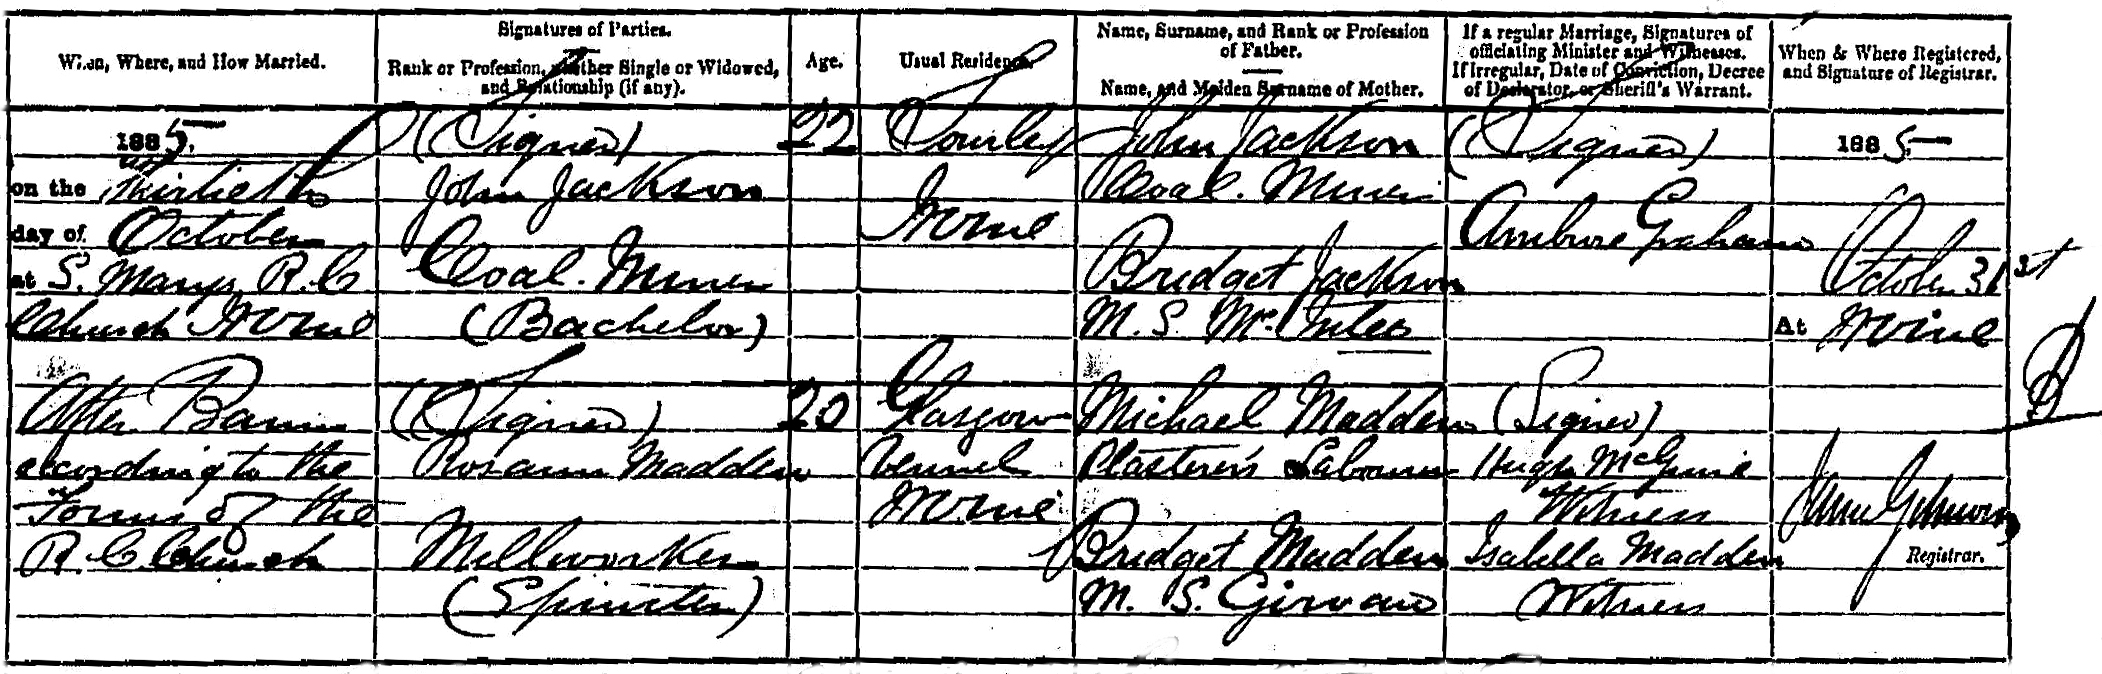 When, Where, and How Married.
Signatures of Parties.
Rank or Profession, whether Single or Widowed,
and Relationship (if any).
Age.
Usual Residence.
Name, Surname, and Rank or Profession
of Father.
Name, and Maiden Surname of Mother.
If a regular Marriage, Signatures of
officiating Minister and Witnesses.
If Irregular, Date of Conviction, Decree
of Declarator, or Sheriff's Warrant.
When & Where Registered,
and Signature of Registrar.
1885,
on the Thirtieth
day of October
at S. Marys R.C
Church Irvine
After Banns
according to the
Forms of the
R.C. Church
(Signed)
John Jackson
Coal Miner
(Bachelor)
(Signed)
Rosann Madden
Millworker
(Spinster)
22
20
Irvine
Glasgow
Vennel
Irvine
John Jackson
Coal Miner
Bridget Jackson
M.S. Mc
Michael Madden
Plasterer's Labourer
Bridget Madden
M. S. Girvan
(Signed)
Graham
(Signed)
Hugh McGuire
Witness
Isabella Madden
Witness
1885
October 31st
At Irvine
Registrar.